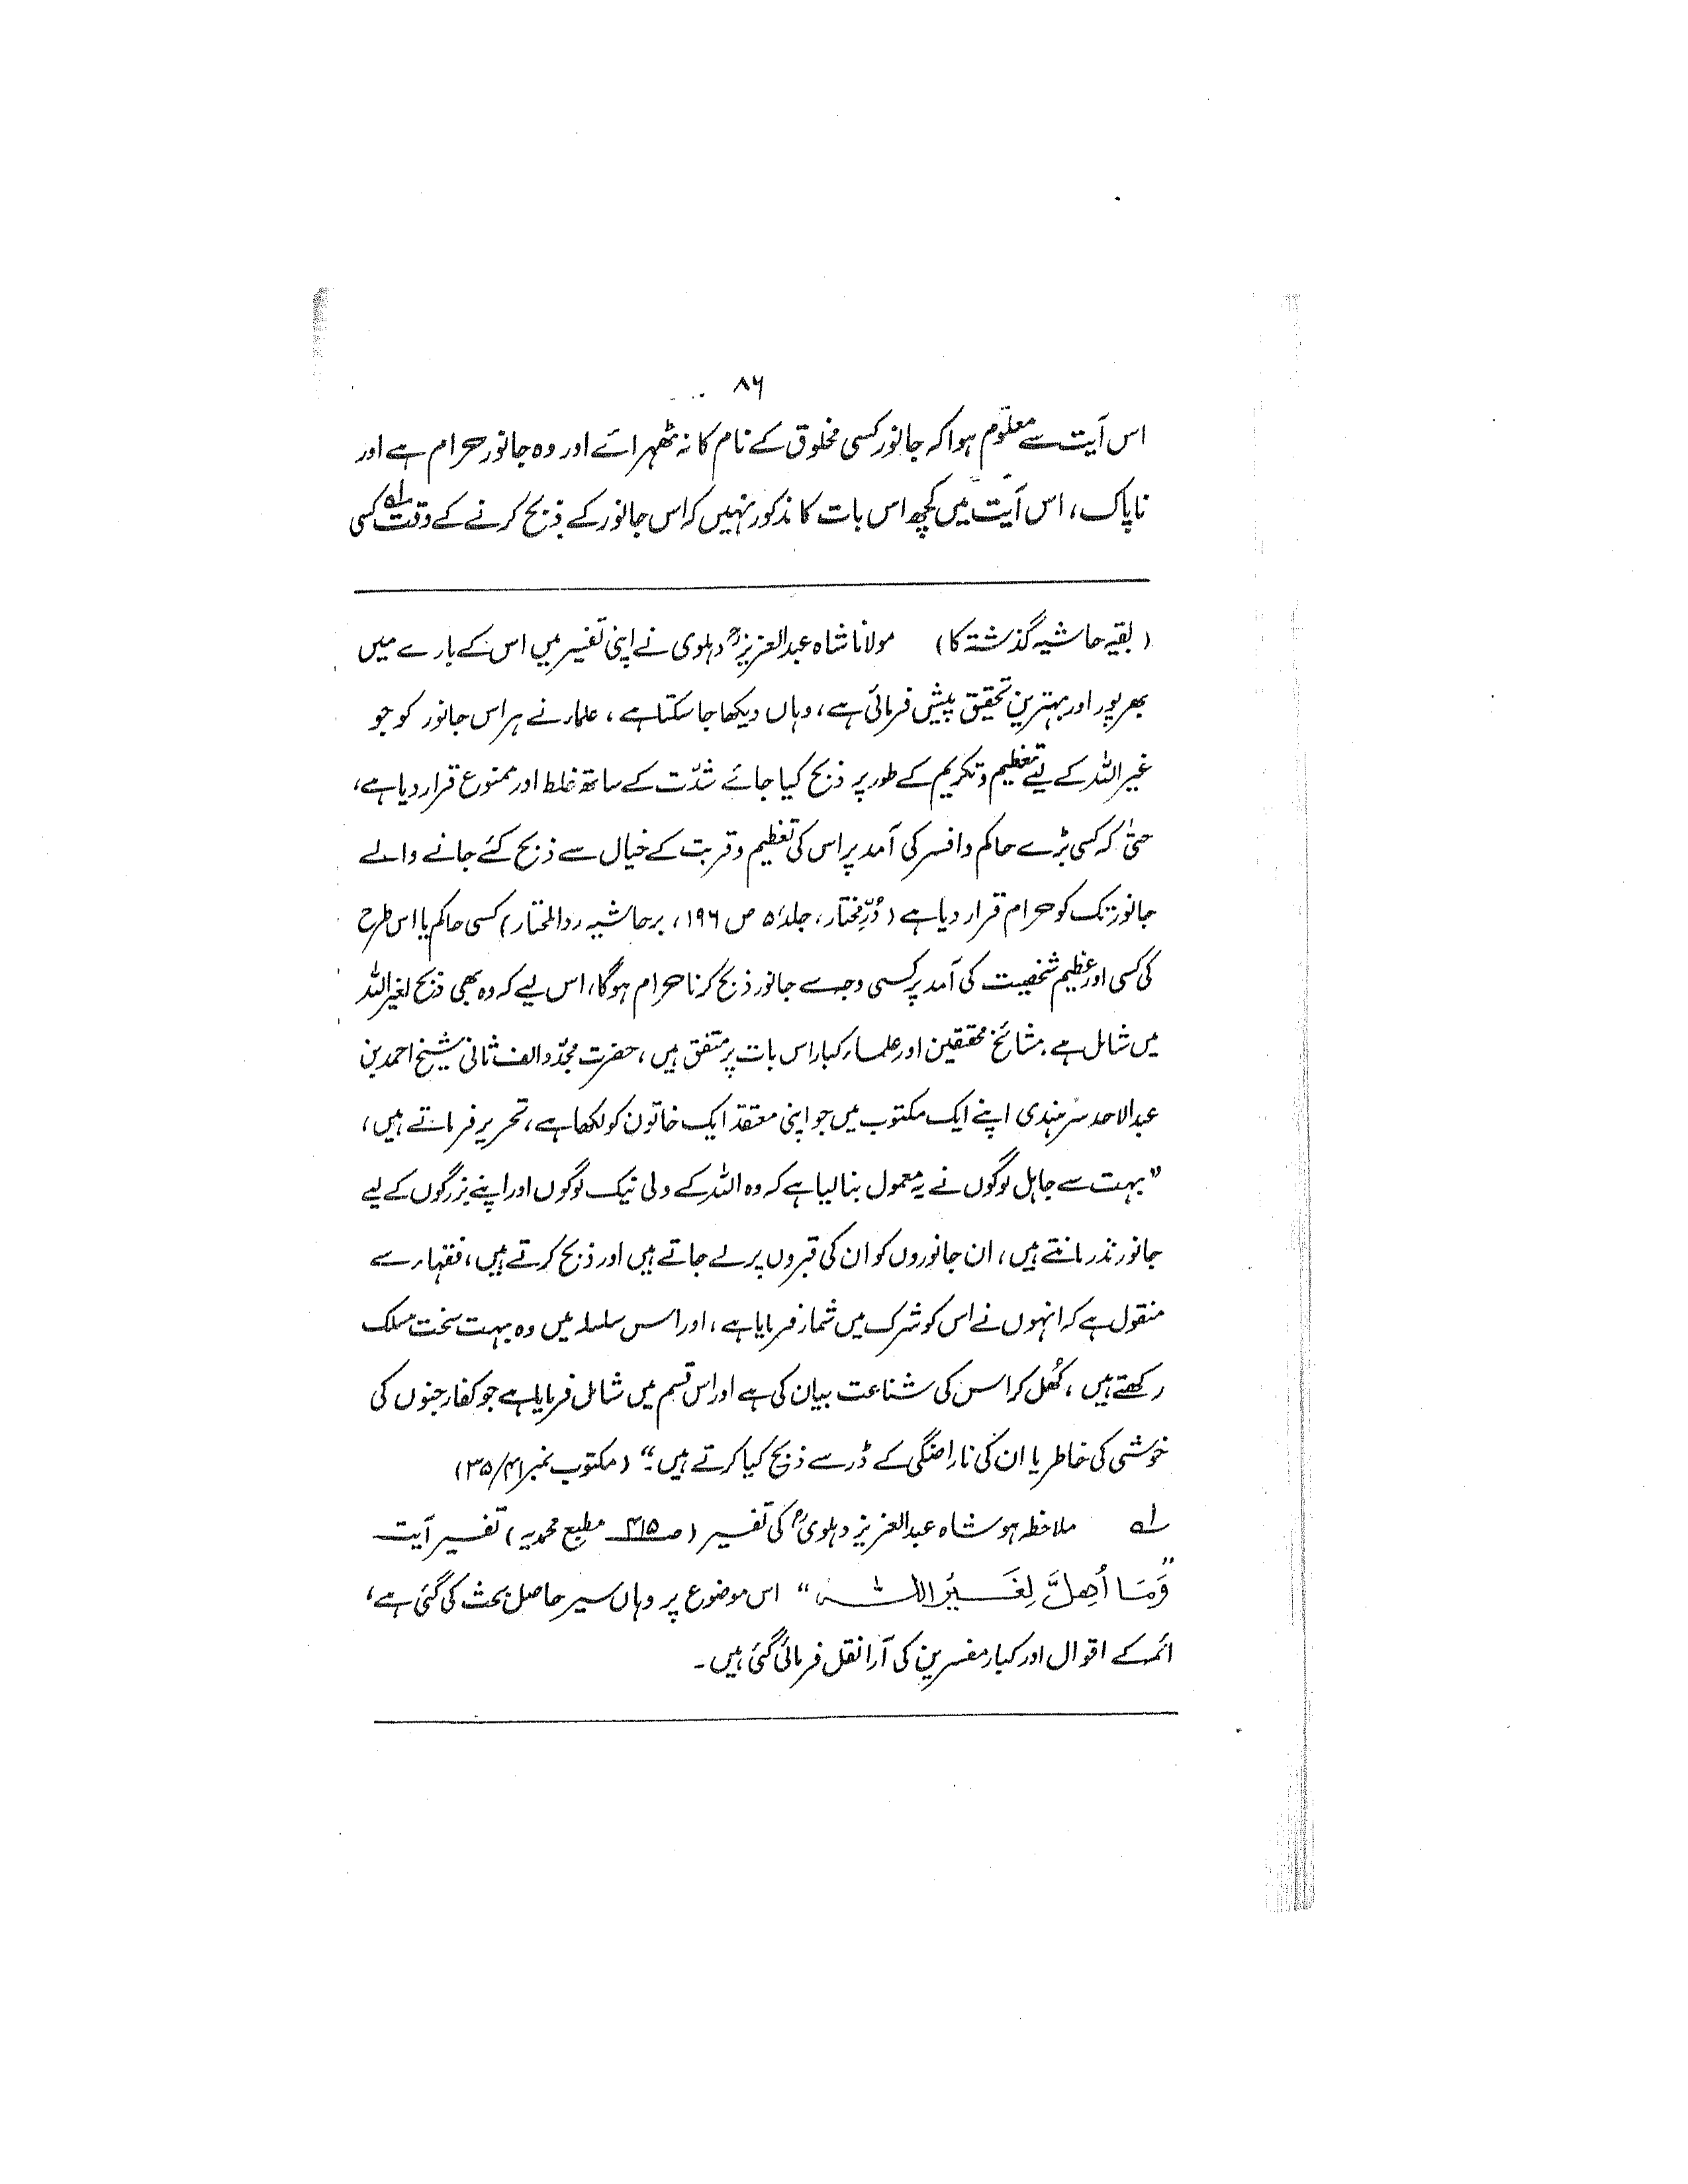 ۸۶
اس آیت سے معلوم ہوا کہ جانور کسی مخلوق کے نام کا نہ ٹھہرائے اور وہ جانور حرام ہے اور
ناپاک، اس آیت میں کچھ اس بات کا مذکور نہیں کہ اس جانور کے ذبح کرنے کے وقت لہ کسی
(بقیہ حاشیہ گذشتہ کا) مولانا شاہ عبدالعزیزؒ دہلوی نے اپنی تفسیر میں اس کے بارے میں
بھرپور اور بہترین تحقیق پیش فرمائی ہے، وہاں دیکھا جا سکتا ہے، علماء نے ہر اس جانور کو جو
غیر اللہ کے لیے تعظیم و تکریم کے طور پر ذبح کیا جائے شدّت کے ساتھ غلط اور ممنوع قرار دیا ہے،
حتیٰ کہ کسی بڑے حاکم و افسر کی آمد پر اس کی تعظیم و قربت کے خیال سے ذبح کئے جانے والے
جانور تک کو حرام قرار دیا ہے (دُرِّ مختار، جلد ۵ ص ۱۹۶، بر حاشیہ رد المحتار) کسی حاکم یا اس طرح
کی کسی اور عظیم شخصیت کی آمد پر کسی وجہ سے جانور ذبح کرنا حرام ہوگا، اس لیے کہ وہ بھی ذبح لغیر اللہ
میں شامل ہے۔ مشائخ محققین اور علماء کبار اس بات پر متفق ہیں، حضرت مجدّد الف ثانی شیخ احمد بن
عبدالاحد سرہندی اپنے ایک مکتوب میں جو اپنی معتقد ایک خاتون کو لکھا ہے، تحریر فرماتے ہیں،
"بہت سے جاہل لوگوں نے یہ معمول بنا لیا ہے کہ وہ اللہ کے ولی نیک لوگوں اور اپنے بزرگوں کے لیے
جانور نذر مانتے ہیں، ان جانوروں کو ان کی قبروں پر لے جاتے ہیں اور ذبح کرتے ہیں، فقہاء سے
منقول ہے کہ انہوں نے اس کو شرک میں شمار فرمایا ہے، اور اس سلسلہ میں وہ بہت سخت مسلک
رکھتے ہیں، کُھل کر اس کی شناعت بیان کی ہے اور اس قسم میں شامل فرمایا ہے جو کفار جنوں کی
خوشی کی خاطر یا ان کی ناراضگی کے ڈر سے ذبح کیا کرتے ہیں۔" (مکتوب نمبر ۳۵/۴۱)
لہ ملاحظہ ہو شاہ عبدالعزیز دہلویؒ کی تفسیر (صـ ۴۱۵ مطبع محمدیہ) تفسیر آیت
"وَمَا أُهِلَّ لِغَيْرِ اللہ" اس موضوع پر وہاں سیر حاصل بحث کی گئی ہے،
ائمہ کے اقوال اور کبار مفسرین کی آرا نقل فرمائی گئی ہیں۔